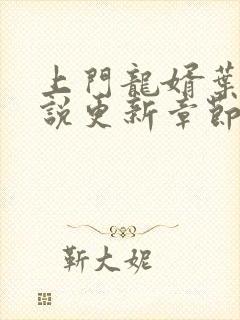 上門龍婿葉
說更新章節
靳大妮